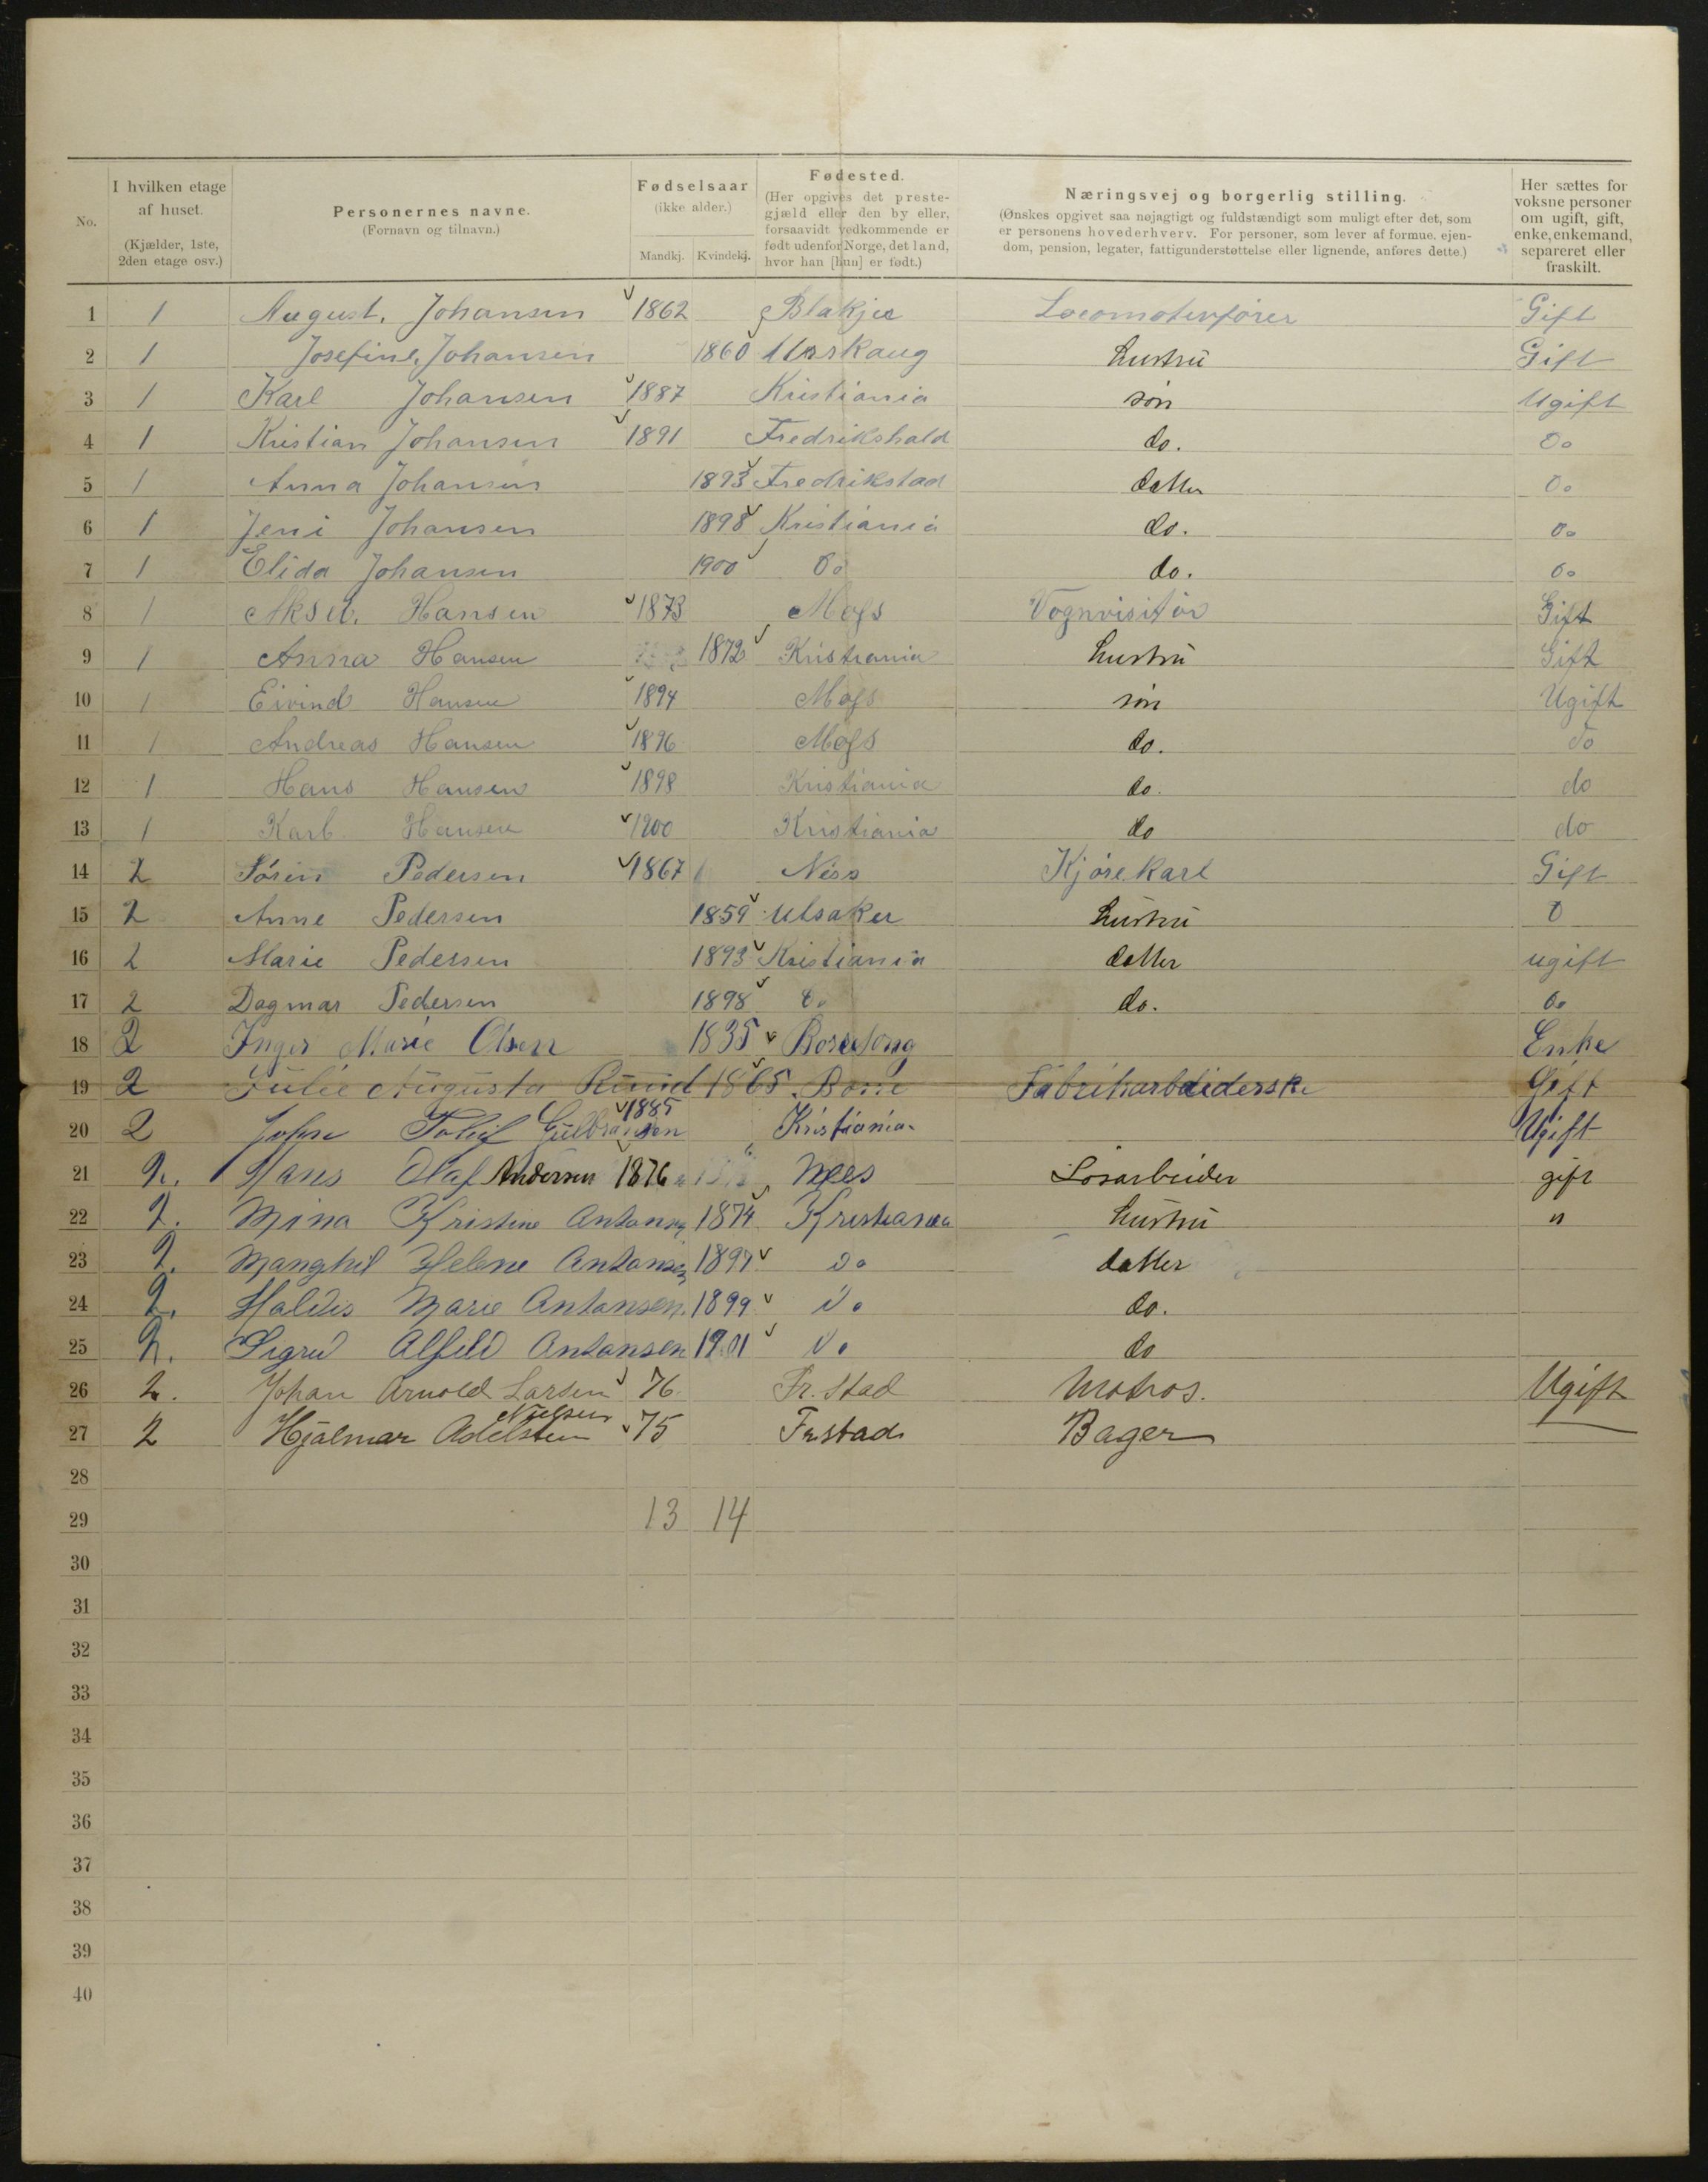 No.
I hvilken etage af huset. (Kjælder, 1ste, 2den etage osv.)
Personernes navne. (Fornavn og tilnavn.)
Fødselsaar (ikke alder.) Mandkj. Kvindekj.
Fødested. (Her opgives det prestegjæld eller den by eller, forsaavidt vedkommende er født udenfor Norge, det land, hvor han [hun] er født.)
Næringsvej og borgerlig stilling. (Ønskes opgivet saa nøjagtigt og fuldstændigt som muligt efter det, som er personens hovederhverv. For personer, som lever af formue, ejendom, pension, legater, fattigunderstøttelse eller lignende, anføres dette.)
Her sættes for voksne personer om ugift, gift, enke, enkemand, separeret eller fraskilt.
1 1 August. Johansen 1862 Blakjer Locomotivfører Gift
2 1 Josefine. Johansen 1860 Urskaug hustru Gift
3 1 Karl Johansen 1887 Kristiania søn Ugift
4 1 Kristian Johansen 1891 Fredrikshald do. Do
5 1 Anna Johansen 1893 Fredrikstad datter Do
6 1 Jeni Johansen 1898 Kristiania do. Do
7 1 Elida Johansen 1900 Do do. Do
8 1 Aksel. Hansen 1873 Moss Vognvisitør Gift
9 1 Anna Hansen 1872 Kristiania hustru Gift
10 1 Eivind Hansen 1894 Moss søn Ugift
11 1 Andreas Hansen 1896 Moss do. do
12 1 Hans Hansen 1898 Kristiania do. do
13 1 Karl Hansen 1900 Kristiania do do
14 2 Sørin Pedersen 1867 Ness Kjørekarl Gift
15 2 Anne Pedersen 1859 Ulsaker hustru
16 2 Marie Pedersen 1893 Kristiania datter ugift
17 2 Dagmar Pedersen 1898 Do do. Do
18 2 Inger Marie Olsen 1835 Enke
19 2 Julie Augusta Ruud 1865 Borre Fabrikarbeiderske Gift
20 2 John Gulbransen 1885 Kristiania. Ugift
21 2. Hans Olaf Andersen 1876 Nees Løsarbeider gift
22 2. Mina Kristine Antonsen 1874 Kristiania hustru "
23 2. Manghil Helene Antonsen 1897 Do datter
24 2. Haldis Marie Antonsen. 1899 Do do.
25 2. Sigrid Alfild Antonsen 1901 Do do
26 2. Johan Arnold Larsen 76 Fr. Stad Matros. Ugift
27 2 Hjalmar Adelsteen Nielsen 75 Fr.stad Bager
28
29 13 14
30
31
32
33
34
35
36
37
38
39
40